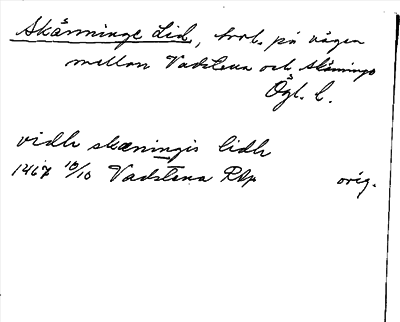 Skänninge Lid, trol. på vägen
mellan Vadstena och Skänninge
Ögl. l.
vidh skæningis lidh
1467 10/10 Vadstena Rbp orig.